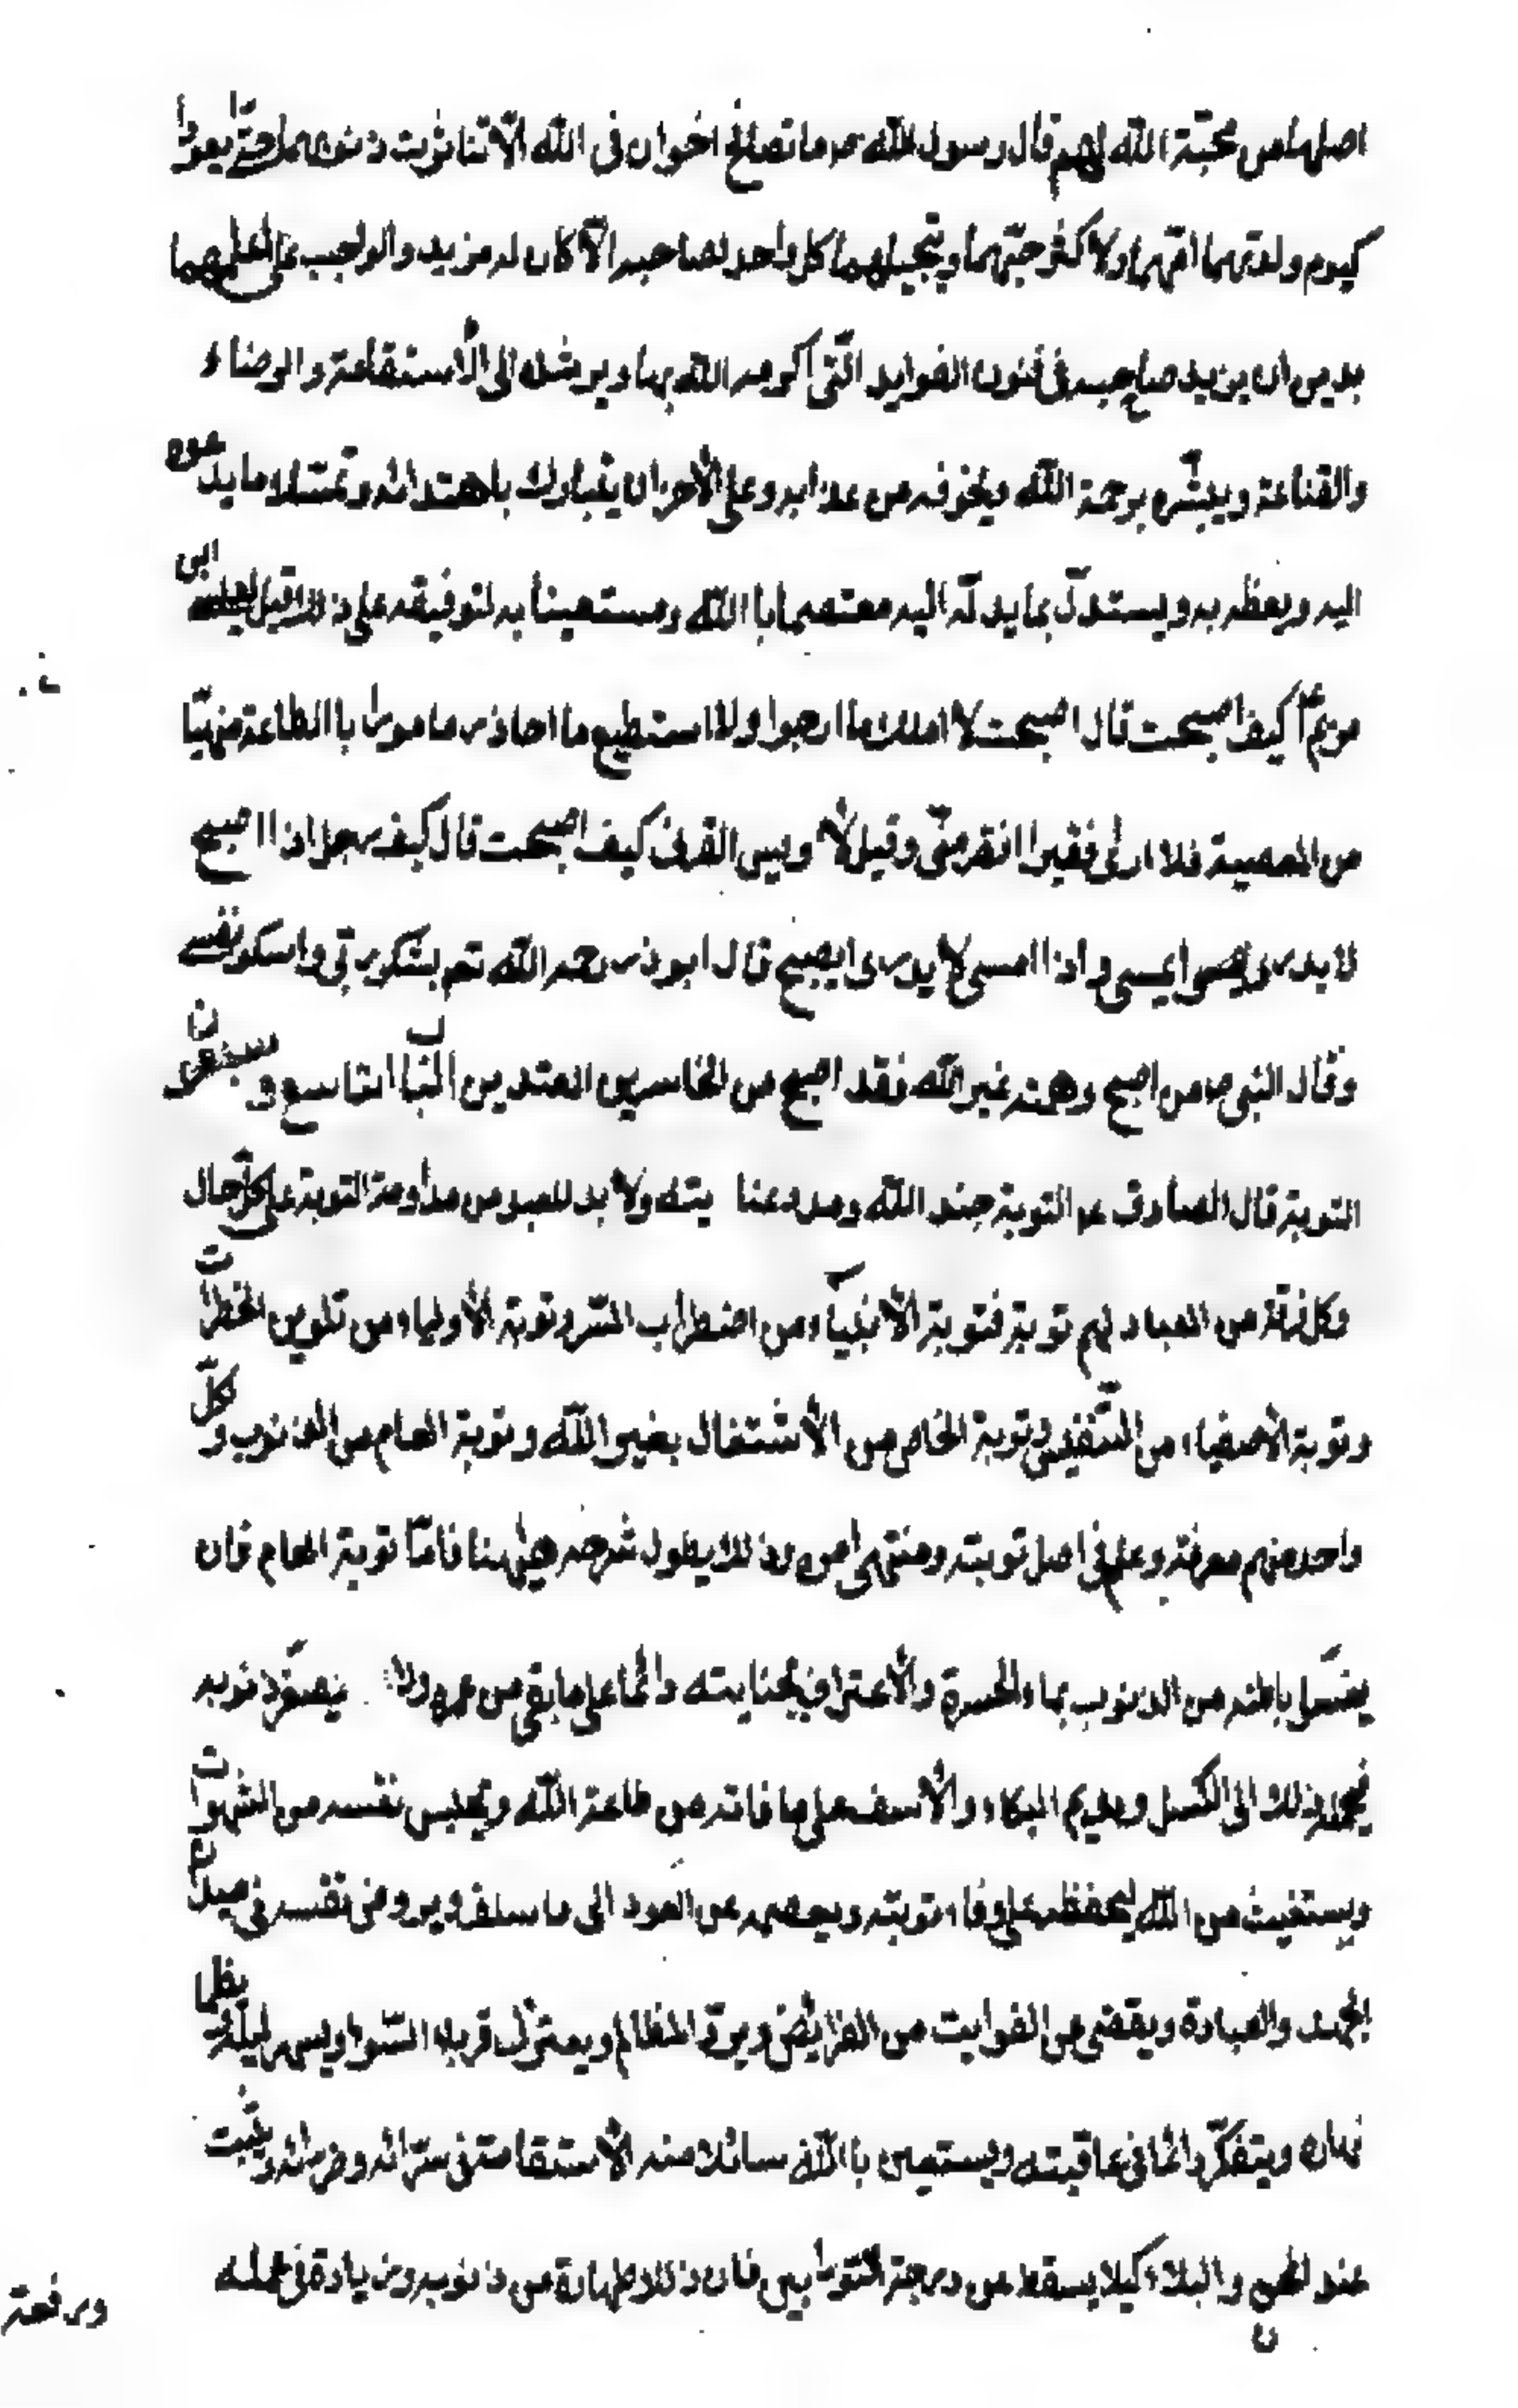 اصلها من محبّة الله لهم قال رسول الله ص ما تصافح اخوان فى الله الّا تناثرت ذنوبهما حتّى يعودا
كيوم ولدتهما امّهما ولا كثر حبّهما وتبجيلهما كل واحد لصاحبه الّا كان له مزيد والواجب على اعلمهما
بدين ان يزيد صاحبه فى فنون الفوايد الّتى اكرمه الله بها ويرشده الى الأستقامة والرضاء
والقناعة ويبشّره برحمة الله ويخوفه من عذابه وعلى الأخر ان يتبارك باهتدائه وتمسّك ما يدعوه
اليه ويعظه به ويستدلّ بما يدلّه اليه معتصما باالله ومستعينا به لتوفيقه على ذلك قيل لعيسى ابن
مريم ع كيف اصبحت قال اصبحت لا املك ما ارجوا ولا استطيع ما احاذر مامورا باالطاعة منهيّا
من المعصية فلا ارى فقيرا افقر منّى وقيل لأويس القرنى كيف اصبحت قال كيف رجل اذا اصبح
لا يدرى ايمسى واذا امسى لا يدرى ايصبح قال ابوذر رحمه الله تعم بشكر ربّى واشكو نفسى
وقال النبى ص من اصبح وهمّه غير الله فقد اصبح من الخاسرين المعتدين الباب التاسع وسبعون
التوبة قال الصادق ع التوبة حبل الله ومدد عنايته ولا بد للعبد من مداومة التوبة على كلّ حال
وكل فرقة من العباد لهم توبة فتوبة الأنبياء من اضطراب السّر وتوبة الأولياء من تلوين الخطرات
وتوبة الأصفياء من التنفيس وتوبة الخاص من الأشتغال بغير الله وتوبة العام من الذنوب وكلّ
واحد منهم معرفة وعلم فى اصل توبته ومنتهى امره وذلك يطول شرحه هيهنا فامّا توبة العام فان
يغسل باطنه من الذنوب بماء الحسرة والأعتراف بجنايته دائما على ما بقى من عمره ولا يصغّر ذنوبه
فيحمله ذلك الى الكسل ويديم البكاء والأسف على ما فاته من طاعة الله ويحبس نفسه من الشهوات
ويستغيث من الله ليحفظه على وفاء توبته ويعصمه عن العود الى ما سلف ويروض نفسه فى ميدان
الجهد والعبادة ويقضى من الفوايت من الفرايض ويردّ المظالم ويعتزل قرناء السّوء ويسهر ليله ويظما
نهاره ويتفكّر دائما فى عاقبته ويستعين باالله سائلا منه الأستقامة فى سرّائه وضرّائه ويثبت
عند المحن والبلاء كيلا يسقط من درجة التوابين فان ذلك طهارة من ذنوبه وزيادة فى عمله
ورفعة